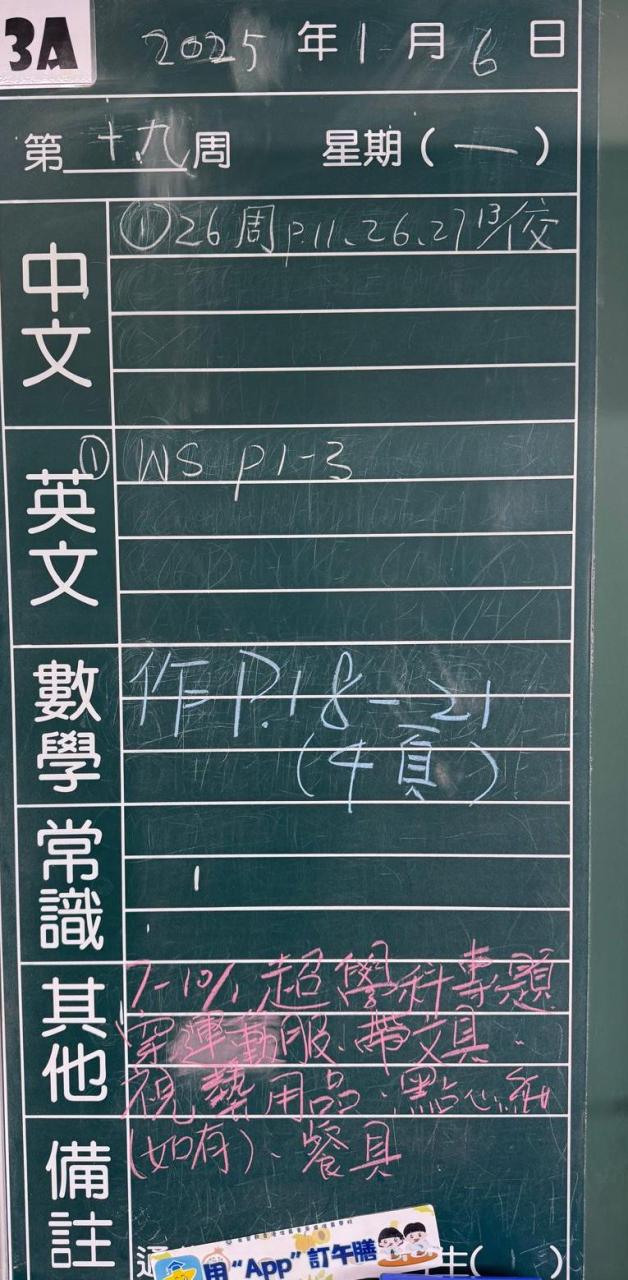 3A
2025年1月6日
第十九周 星期(一)
中文
①26周 p.11、26、27 13/ 交
英文
① WS p1-3
數學
作 P.18-21
(4頁)
常識
其他
7-10/1 超學科專題
穿運動服、帶文具、
視藝用品、點心紙
(如有)、餐具
備註
用“App”訂午膳
生( )